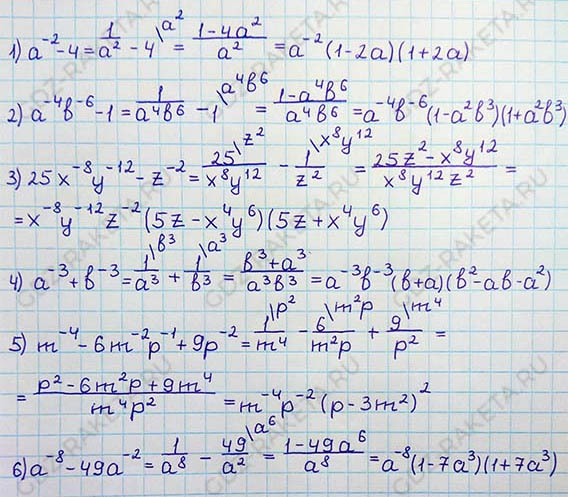 1) a⁻² - 4 = 1/a² - 4 \a² = (1-4a²)/a² = a⁻²(1-2a)(1+2a)
2) a⁻⁴b⁻⁶ - 1 = 1/(a⁴b⁶) - 1 \a⁴b⁶ = (1-a⁴b⁶)/(a⁴b⁶) = a⁻⁴b⁻⁶(1-a²b³)(1+a²b³)
3) 25x⁻⁸y⁻¹² - z⁻² = 25/(x⁸y¹²) \z² - 1/z² \x⁸y¹² = (25z²-x⁸y¹²)/(x⁸y¹²z²) =
= x⁻⁸y⁻¹²z⁻²(5z-x⁴y⁶)(5z+x⁴y⁶)
4) a⁻³ + b⁻³ = 1/a³ \b³ + 1/b³ \a³ = (b³+a³)/(a³b³) = a⁻³b⁻³(b+a)(b²-ab-a²)
5) m⁻⁴ - 6m⁻²p⁻¹ + 9p⁻² = 1/m⁴ \p² - 6/(m²p) \m²p + 9/p² \m⁴ =
= (p²-6m²p+9m⁴)/(m⁴p²) = m⁻⁴p⁻²(p-3m²)²
6) a⁻⁸ - 49a⁻² = 1/a⁸ - 49/a² \a⁶ = (1-49a⁶)/a⁸ = a⁻⁸(1-7a³)(1+7a³)
GDZ-RAKETA.RU